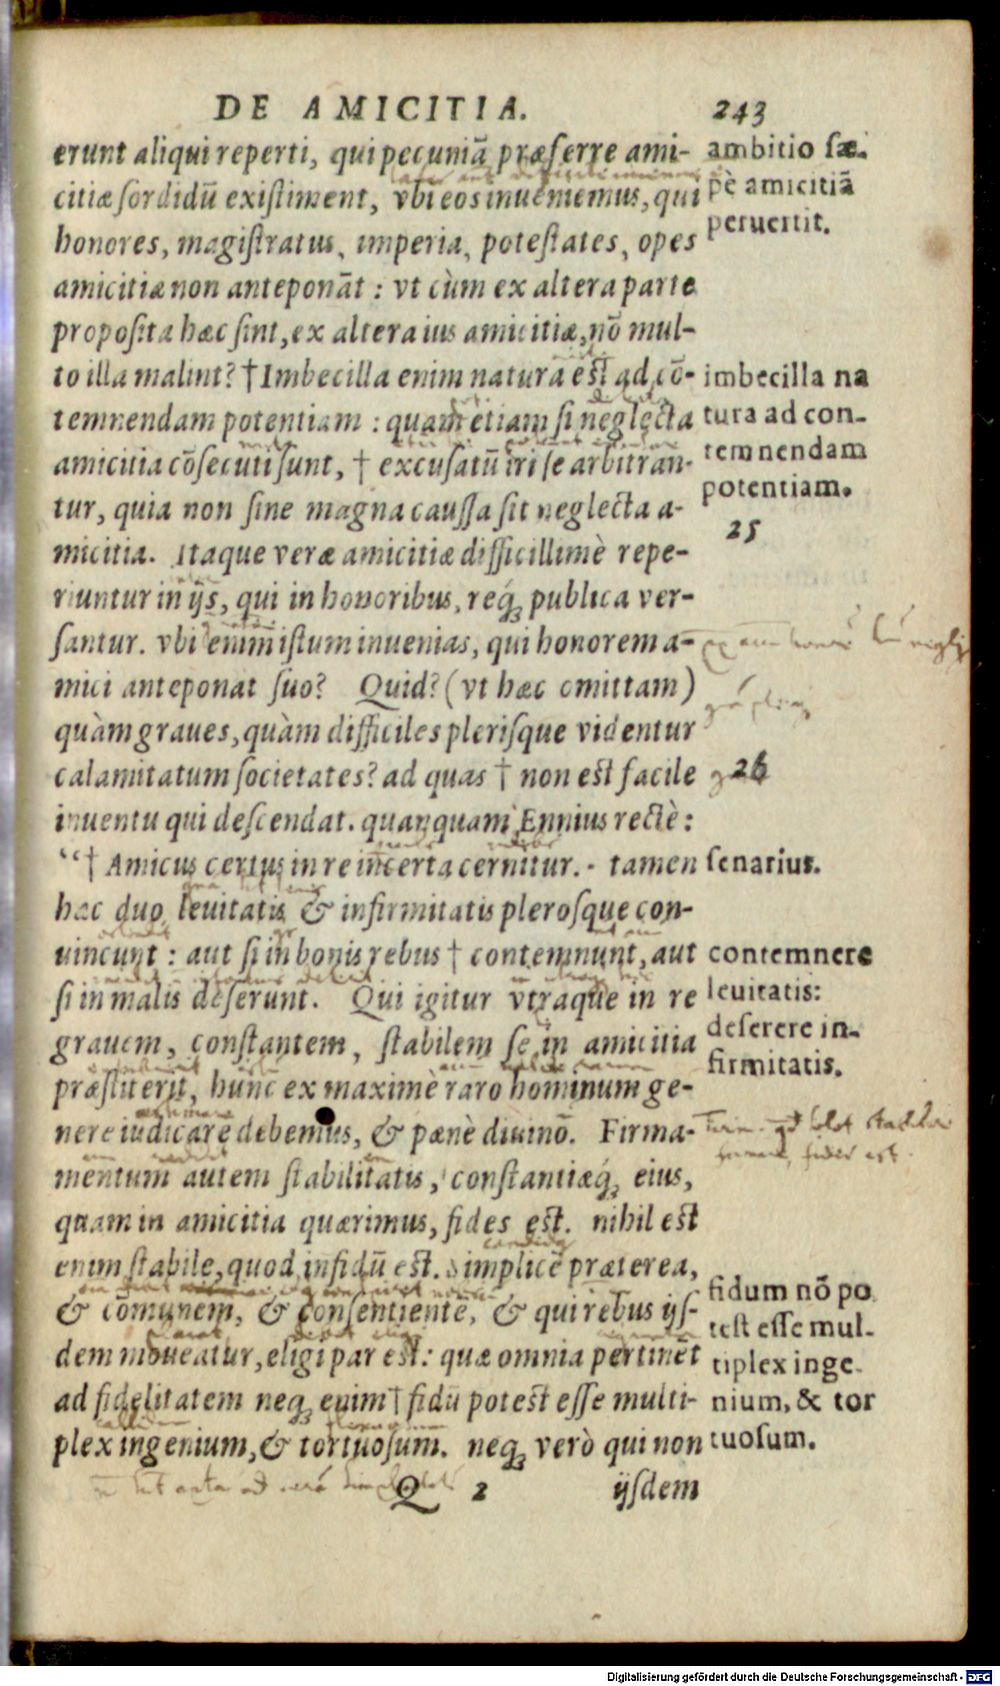 DE AMICITIA. 243
erunt aliqui reperti, qui pecuniã præferre ami-
citiæ sordidũ existiment, vbi eos inueniemus, qui
honores, magistratus, imperia, potestates, opes
amicitiæ non anteponãt: vt cùm ex altera parte
proposita hæc sint, ex altera ius amicitiæ, nõ mul-
to illa malint? † Imbecilla enim natura est ad cõ-
temnendam potentiam: quam etiam si neglecta
amicitia cõsecuti sunt, † excusatũ iri se arbitran-
tur, quia non sine magna caussa sit neglecta a-
micitia. Itaque veræ amicitiæ difficillimè repe-
riuntur in ijs, qui in honoribus, req́; publica ver-
santur. vbi enim istum inuenias, qui honorem a-
mici anteponat suo? Quid? (vt hæc omittam)
quàm graues, quàm difficiles plerisque videntur
calamitatum societates? ad quas † non est facile
inuentu qui descendat. quanquam Ennius rectè:
“† Amicus certus in re incerta cernitur. - tamen
hæc duo leuitatis & infirmitatis plerosque con-
uincunt: aut si in bonis rebus † contemnunt, aut
si in malis deserunt. Qui igitur vtraque in re
grauem, constantem, stabilem se in amicitia
præstiterit, hunc ex maximè raro hominum ge-
nere iudicare debemus, & pænè diuinõ. Firma-
mentum autem stabilitatis, constantiæq́; eius,
quam in amicitia quærimus, fides est. nihil est
enim stabile, quod infidũ est. Simplicẽ præterea,
& cõmunem, & consentientẽ, & qui rebus ijs-
dem moueatur, eligi par est: quæ omnia pertinẽt
ad fidelitatem neq; enim † fidũ potest esse multi-
plex ingenium, & tortuosum. neq; verò qui non
Q 2 ijsdem
ambitio sæ-
pè amicitiã
peruertit.
imbecilla na
tura ad con-
temnendam
potentiam.
25
26
senarius.
contemnere
leuitatis:
deserere in-
firmitatis.
fidum nõ po
test esse mul-
tiplex inge-
nium, & tor
tuosum.
Digitalisierung gefördert durch die Deutsche Forschungsgemeinschaft - DFG